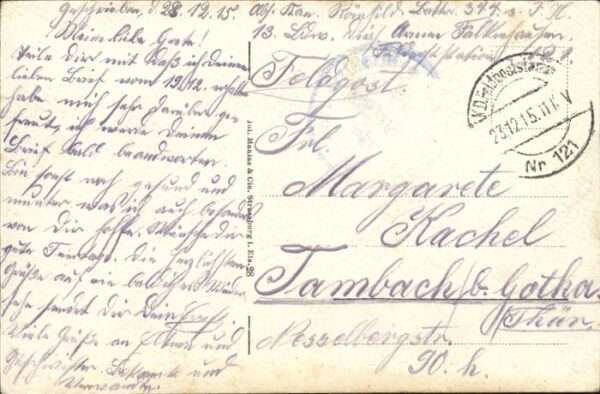 Geschrieben, d 28.12.15.
Meine liebe Grete!
Teile Dir mit daß ich Deinen
lieben Brief vom 19.12. erhalten
habe mich sehr darüber ge
freut, ich werde Deinen
Brief bald beantworten.
Bin sonst noch gesund und
munter was ich auch
von Dir hoffe. Wünsche Dir
gute Feiertage. Die herzlichsten
Grüße auf ein baldiges Wieder
sehn sendet Dir Dein
Viele Grüße an Eltern und
Geschwister. Bekannte und
Verwandte.
Jos. Hanlas & Cie. Strassburg i. Els. 28
Abs. Kan. 
13. Ldw. Armee Falkenhausen.
Feldpoststation 121.
Feldpost.
K.D. Feldpoststation
28.12.15.11 V
Nr 121
Frl.
Margarete
Kachel
Tambach b. Gotha
Thür.
Nesselbergstr.
90. h.